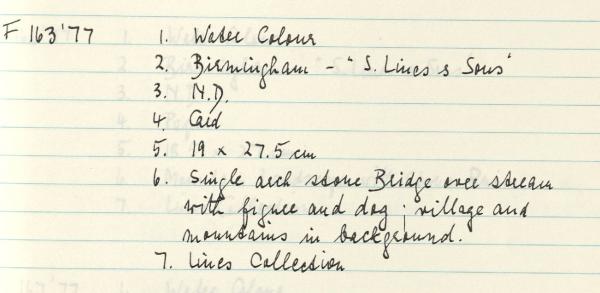 F 163'77 1. Water Colour
2. Birmingham - "S. Lines & Sons"
3. N.D.
4. Card
5. 19 x 27.5 cm
6. Single arch stone Bridge over stream
with figure and dog; village and
mountains in background.
7. Lines Collection